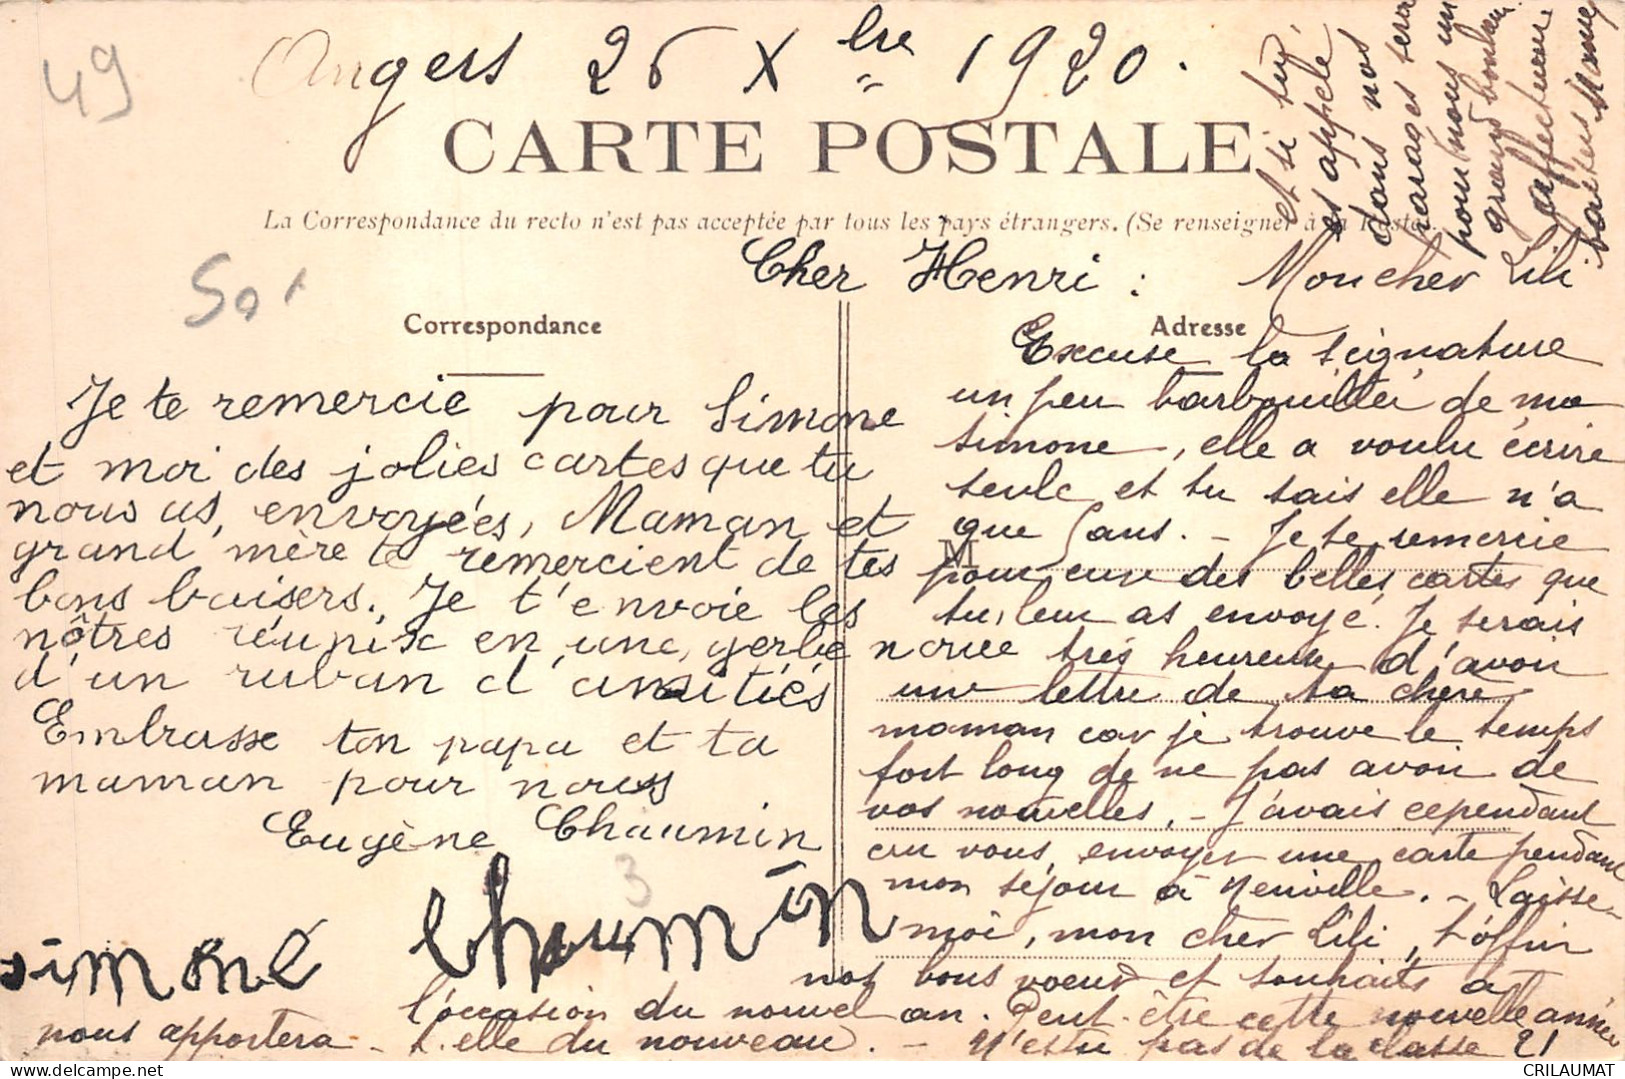 49
Angers 26 Xbre 1920.
CARTE POSTALE
La Correspondance du recto n'est pas acceptée par tous les pays étrangers. (Se renseigner à la Poste).
50f
Correspondance
Adresse
Cher Henri :
Je te remercie pour Simone
et moi des jolies cartes que tu
nous as, envoyées, Maman et
grand mère te remercient de tes
bons baisers. Je t'envoie les
nôtres réunix en une, gerbe nouee
d'un ruban d'amitiés
Embrasse ton papa et ta
maman pour nous
Eugène Chaumin
3
simone Chaumin
Mon cher Lili
Excuse la signature
un peu barbouillée de ma
Simone, elle a voulu écrire
seule et tu sais elle n'a
que 5 ans. - Je te remercie
M
pour eux des belles cartes que
tu, leur as envoyé. Je serais
très heureuse d'avoir
une lettre de ta chère
maman car je trouve le temps
fort long de ne pas avoir de
vos nouvelles. - J'avais cependant
cru vous envoyer une carte pendant
mon séjour à Neuville. - Laisse-
moi, mon cher Lili, t'offrir
nos bons voeux et souhaits à
l'occasion du nouvel an. Peut-être cette nouvelle année
nous apportera-t-elle du nouveau. - N'es tu pas de la classe 21
et si tu,
es appelé
dans nos
parages sera
pour nous un
grand bonheur
affectueux
baisers